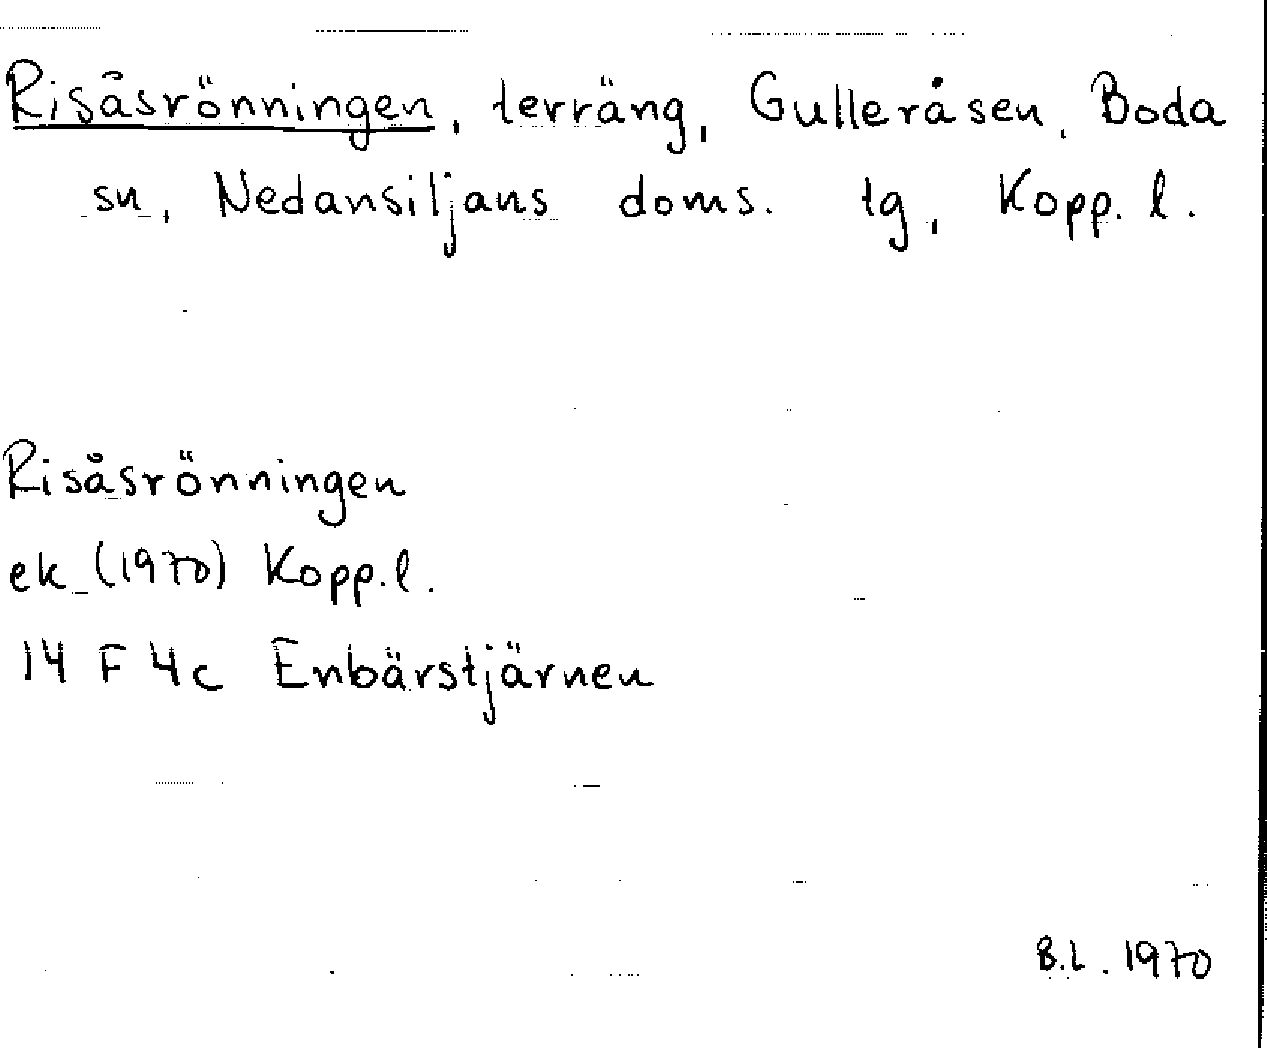 Risåsrönningen, terräng, Gulleråsen, Boda
sn, Nedansiljans doms. tg, Kopp. l.
Risåsrönningen
ek (1970) Kopp. l.
14 F 4c Enbärstjärnen
B.L. 1970